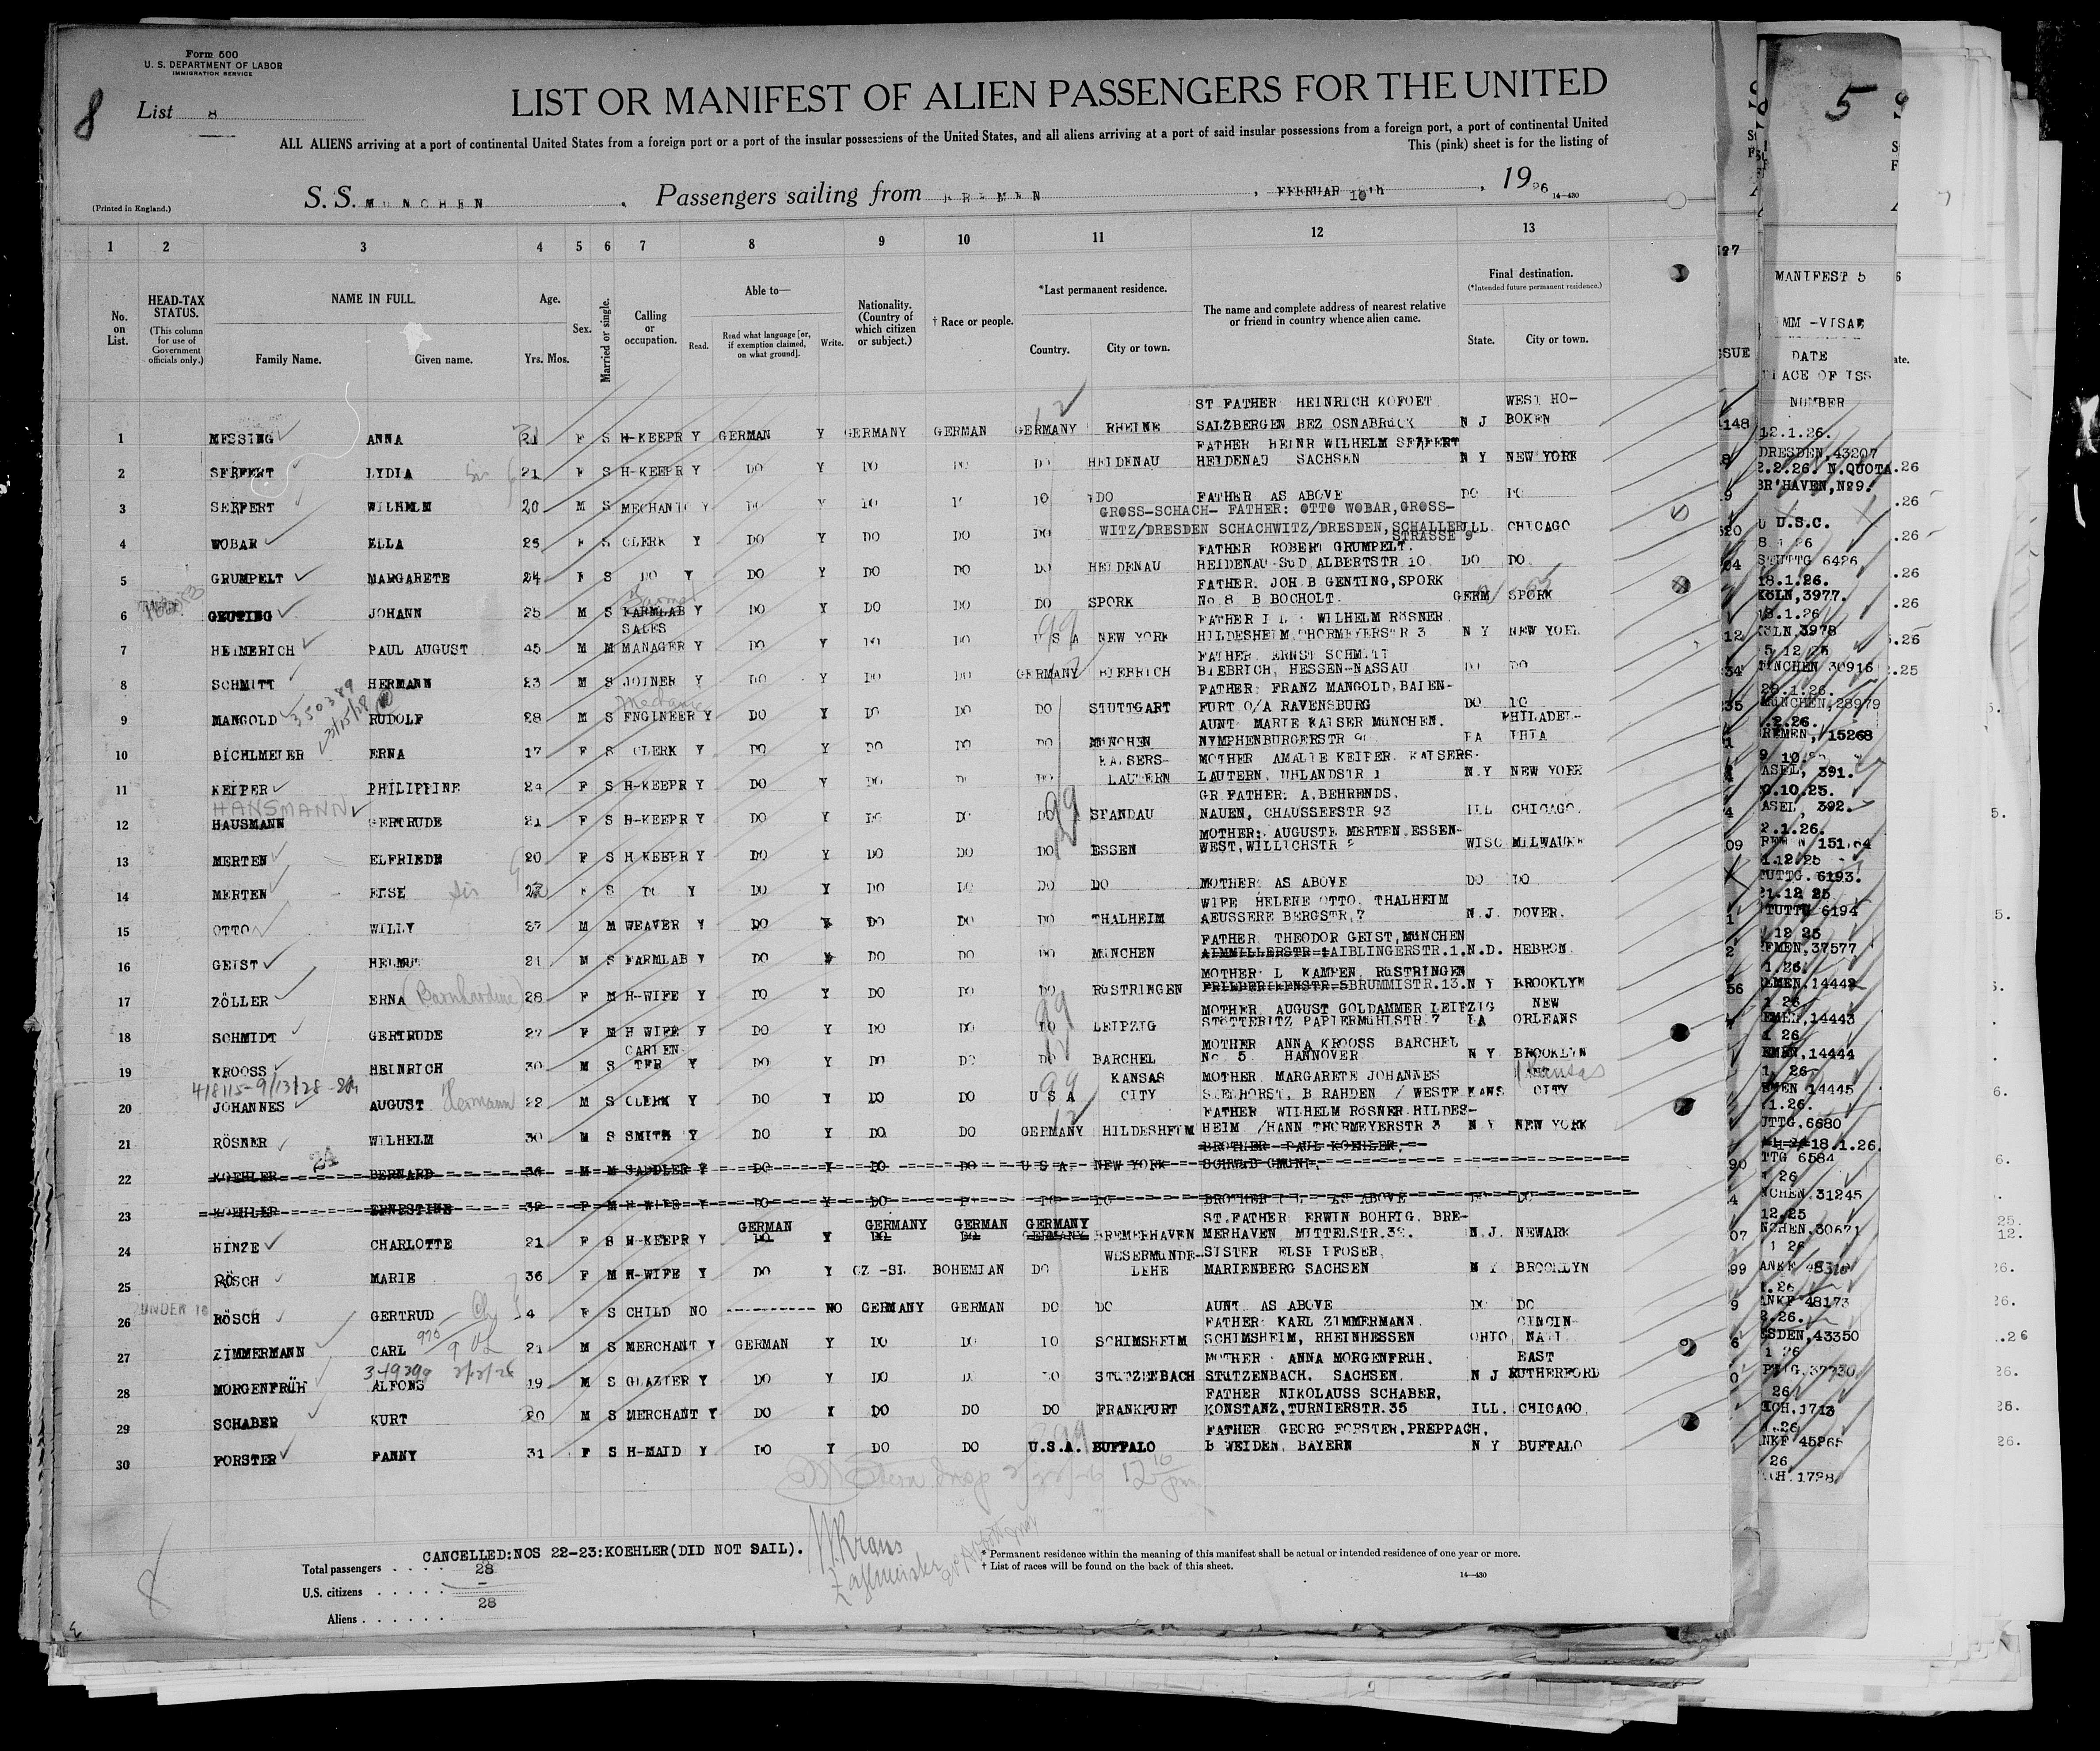 Form 500
U. S. DEPARTMENT OF LABOR
IMMIGRATION SERVICE
8
List 8
LIST OR MANIFEST OF ALIEN PASSENGERS FOR THE UNITED
ALL ALIENS arriving at a port of continental United States from a foreign port or a port of the insular possessions of the United States, and all aliens arriving at a port of said insular possessions from a foreign port, a port of continental United
This (pink) sheet is for the listing of
S. S. MUNCHEN , Passengers sailing from BREMEN , FEBRUAR 10th , 1926
(Printed in England.) 14—430
1 2 3 4 5 6 7 8 9 10 11 12 13
No. on List.
HEAD-TAX STATUS.
(This column for use of Government officials only.)
NAME IN FULL.
Family Name. Given name.
Age.
Yrs. Mos.
Sex.
Married or single.
Calling or occupation.
Able to—
Read. Read what language [or, if exemption claimed, on what ground]. Write.
Nationality. (Country of which citizen or subject.)
† Race or people.
*Last permanent residence.
Country. City or town.
The name and complete address of nearest relative or friend in country whence alien came.
Final destination.
(*Intended future permanent residence.)
State. City or town.
ST FATHER HEINRICH KOFOET WEST HO-
1 MESSING ANNA 21 F S H-KEEPR Y GERMAN Y GERMANY GERMAN GERMANY RHEINE SALZBERGEN BEZ OSNABRUCK N J BOKEN
FATHER HEINR WILHELM SEIFERT
2 SEIFERT LYDIA 21 F S H-KEEPR Y DO Y DO DO DO HEIDENAU HEIDENAU SACHSEN N Y NEW YORK
3 SEIFERT WILHELM 20 M S MECHANIC Y DO Y DO DO DO DO FATHER AS ABOVE DO DO
GROSS-SCHACH- FATHER: OTTO WOBAR, GROSS-
4 WOBAR ELLA 25 F S CLERK Y DO Y DO DO DO WITZ/DRESDEN SCHACHWITZ/DRESDEN, SCHALLER ILL. CHICAGO
STRASSE 9
FATHER ROBERT GRUMPELT.
5 GRUMPELT MARGARETE 24 F S DO Y DO Y DO DO DO HEIDENAU HEIDENAU-SUD ALBERTSTR 10 DO DO
FATHER. JOH. B GENTING, SPORK
6 GEUTING JOHANN 25 M S FARMLAB Y DO Y DO DO DO SPORK No. 8 B BOCHOLT. GERM SPORK
SALES FATHER I L WILHELM RÖSNER
7 HEIMERICH PAUL AUGUST 45 M M MANAGER Y DO Y DO DO U S A NEW YORK HILDESHEIM THORMEYERSTR 3 N Y NEW YORK
FATHER. ERNST SCHMITT
8 SCHMITT HERMANN 23 M S JOINER Y DO Y DO DO GERMANY BIEBRICH BIEBRICH, HESSEN-NASSAU DO DO
350389 FATHER: FRANZ MANGOLD, BAIEN-
9 MANGOLD RUDOLF 28 M S ENGINEER Y DO Y DO DO DO STUTTGART FURT O/A RAVENSBURG DO DO
AUNT MARIE KAISER MÜNCHEN. PHILADEL-
10 BICHLMEIER ERNA 17 F S CLERK Y DO Y DO DO DO MÜNCHEN NYMPHENBURGERSTR PA PHIA
KAISERS- MOTHER AMALIE KEIPER. KAISERS-
11 KEIPER PHILIPPINE 24 F S H-KEEPR Y DO Y DO DO DO LAUTERN LAUTERN, UHLANDSTR 1 N.Y NEW YORK
HANSMANN GR.FATHER. A.BEHRENDS,
12 HAUSMANN GERTRUDE 21 F S H-KEEPR Y DO Y DO DO DO SPANDAU NAUEN, CHAUSSEESTR 93 ILL CHICAGO.
MOTHER: AUGUSTE MERTEN ESSEN-
13 MERTEN ELFRIEDE 20 F S H KEEPR Y DO Y DO DO DO ESSEN WEST, WILLICHSTR WISC MILWAUKE
14 MERTEN ELSE sis F S DO Y DO Y DO DO DO DO MOTHER AS ABOVE DO DO
WIFE HELENE OTTO, THALHEIM
15 OTTO WILLY 27 M M WEAVER Y DO Y DO DO DO THALHEIM AEUSSERE BERGSTR, 7 N.J. DOVER.
FATHER THEODOR GEIST, MÜNCHEN
16 GEIST HELMUT 21 M S FARMLAB Y DO Y DO DO DO MÜNCHEN AINMILLERSTR 1 AIBLINGERSTR.1. N.D. HEBRON
MOTHER L KAMPEN, RÜSTRINGEN
17 ZÖLLER ERNA (Barnhardine) 28 F M H-WIFE Y DO Y DO DO DO RÜSTRINGEN FRIEDERIKENSTR-5 BRUMMISTR.13. N Y BROOKLYN
MOTHER AUGUST GOLDAMMER LEIPZIG NEW
18 SCHMIDT GERTRUDE 27 F M H WIFE Y DO Y DO DO DO LEIPZIG STÖTTERITZ PAPIERMÜHLSTR.7 LA ORLEANS
GARTEN MOTHER ANNA KROOSS BARCHEL
19 KROOSS HEINRICH 30 M S TER Y DO Y DO DO DO BARCHEL No 5 HANNOVER N Y BROOKLYN
418115-9/13/28 KANSAS MOTHER MARGARETE JOHANNES Kansas
20 JOHANNES AUGUST Hermann 22 M S CLERK Y DO Y DO DO U S A CITY B RAHDEN / WESTF KANS CITY
FATHER WILHELM RÖSNER HILDES-
21 RÖSNER WILHELM 30 M S SMITH Y DO Y DO DO GERMANY HILDESHEIM HEIM /HANN THORMEYERSTR 3 N Y NEW YORK
BROTHER PAUL KOEHLER,
22 KOEHLER BERNARD 36 M M SADDLER Y DO Y DO DO U S A NEW YORK SCHWÄB GMÜND,
23 KOEHLER ERNESTINE 32 F M H WIFE Y DO Y DO DO DO BROTHER I L AS ABOVE DO DO
GERMAN GERMANY GERMAN GERMANY ST.FATHER ERWIN BOHRIG, BRE-
24 HINZE CHARLOTTE 21 F S H-KEEPR Y DO Y DO DO GERMANY BREMERHAVEN MERHAVEN, MITTELSTR.32. N.J. NEWARK
WESERMUNDE- SISTER ELSE
25 RÖSCH MARIE 36 F M H-WIFE Y DO Y CZ-SL BOHEMIAN DO LEHE MARIENBERG SACHSEN N Y BROOKLYN
UNDER 16
26 RÖSCH GERTRUD 4 F S CHILD NO NO GERMANY GERMAN DO DO AUNT AS ABOVE DO DO
FATHER KARL ZIMMERMANN. CINCIN-
27 ZIMMERMANN CARL 21 M S MERCHANT Y GERMAN Y DO DO DO SCHIMSHEIM SCHIMSHEIM, RHEINHESSEN OHIO NATI
MOTHER ANNA MORGENFRÜH. EAST
28 MORGENFRÜH ALFONS 19 M S GLAZIER Y DO Y DO DO DO STÜTZENBACH STÜTZENBACH. SACHSEN. N J RUTHERFORD
FATHER NIKOLAUSS SCHABER,
29 SCHABER KURT 20 M S MERCHANT Y DO Y DO DO DO FRANKFURT KONSTANZ, TURNIERSTR.35 ILL. CHICAGO.
FATHER GEORG FORSTER, PREPPACH,
30 FORSTER FANNY 31 F S H-MAID Y DO Y DO DO U.S.A. BUFFALO B WEIDEN, BAYERN N Y BUFFALO
CANCELLED:NOS 22-23:KOEHLER(DID NOT SAIL).
Total passengers . . . . 28
U.S. citizens . . . . . –
Aliens . . . . . . 28
* Permanent residence within the meaning of this manifest shall be actual or intended residence of one year or more.
† List of races will be found on the back of this sheet.
14—430
8
5
MANIFEST 5
IMM -VISAE
DATE
PLACE OF ISS
NUMBER
12.1.26.
DRESDEN,43207
2.2.26. N.QUOTA
BR'HAVEN,No9.
U.S.C.
STUTTG 6426
18.1.26.
KÖLN,3977.
18.1.26
KÖLN,3978
5 12 25
MÜNCHEN 30916
MÜNCHEN,28979
BREMEN, 15268
ASEL, 391.
0.10.25.
ASEL, 392.
2.1.26.
1.12.25
TUTTG.6193.
21.12 25
STUTTG 6194
12 25
EMEN,37577
EMEN,14442
EMEN,14443
EMEN,14444
EMEN 14445
UTTG.6680
18.1.26.
TTG 6584
NCHEN.31245
12.25
NCHEN.30671
ANKF 48173
SDEN,43350
ICH,1713
NKF 45265